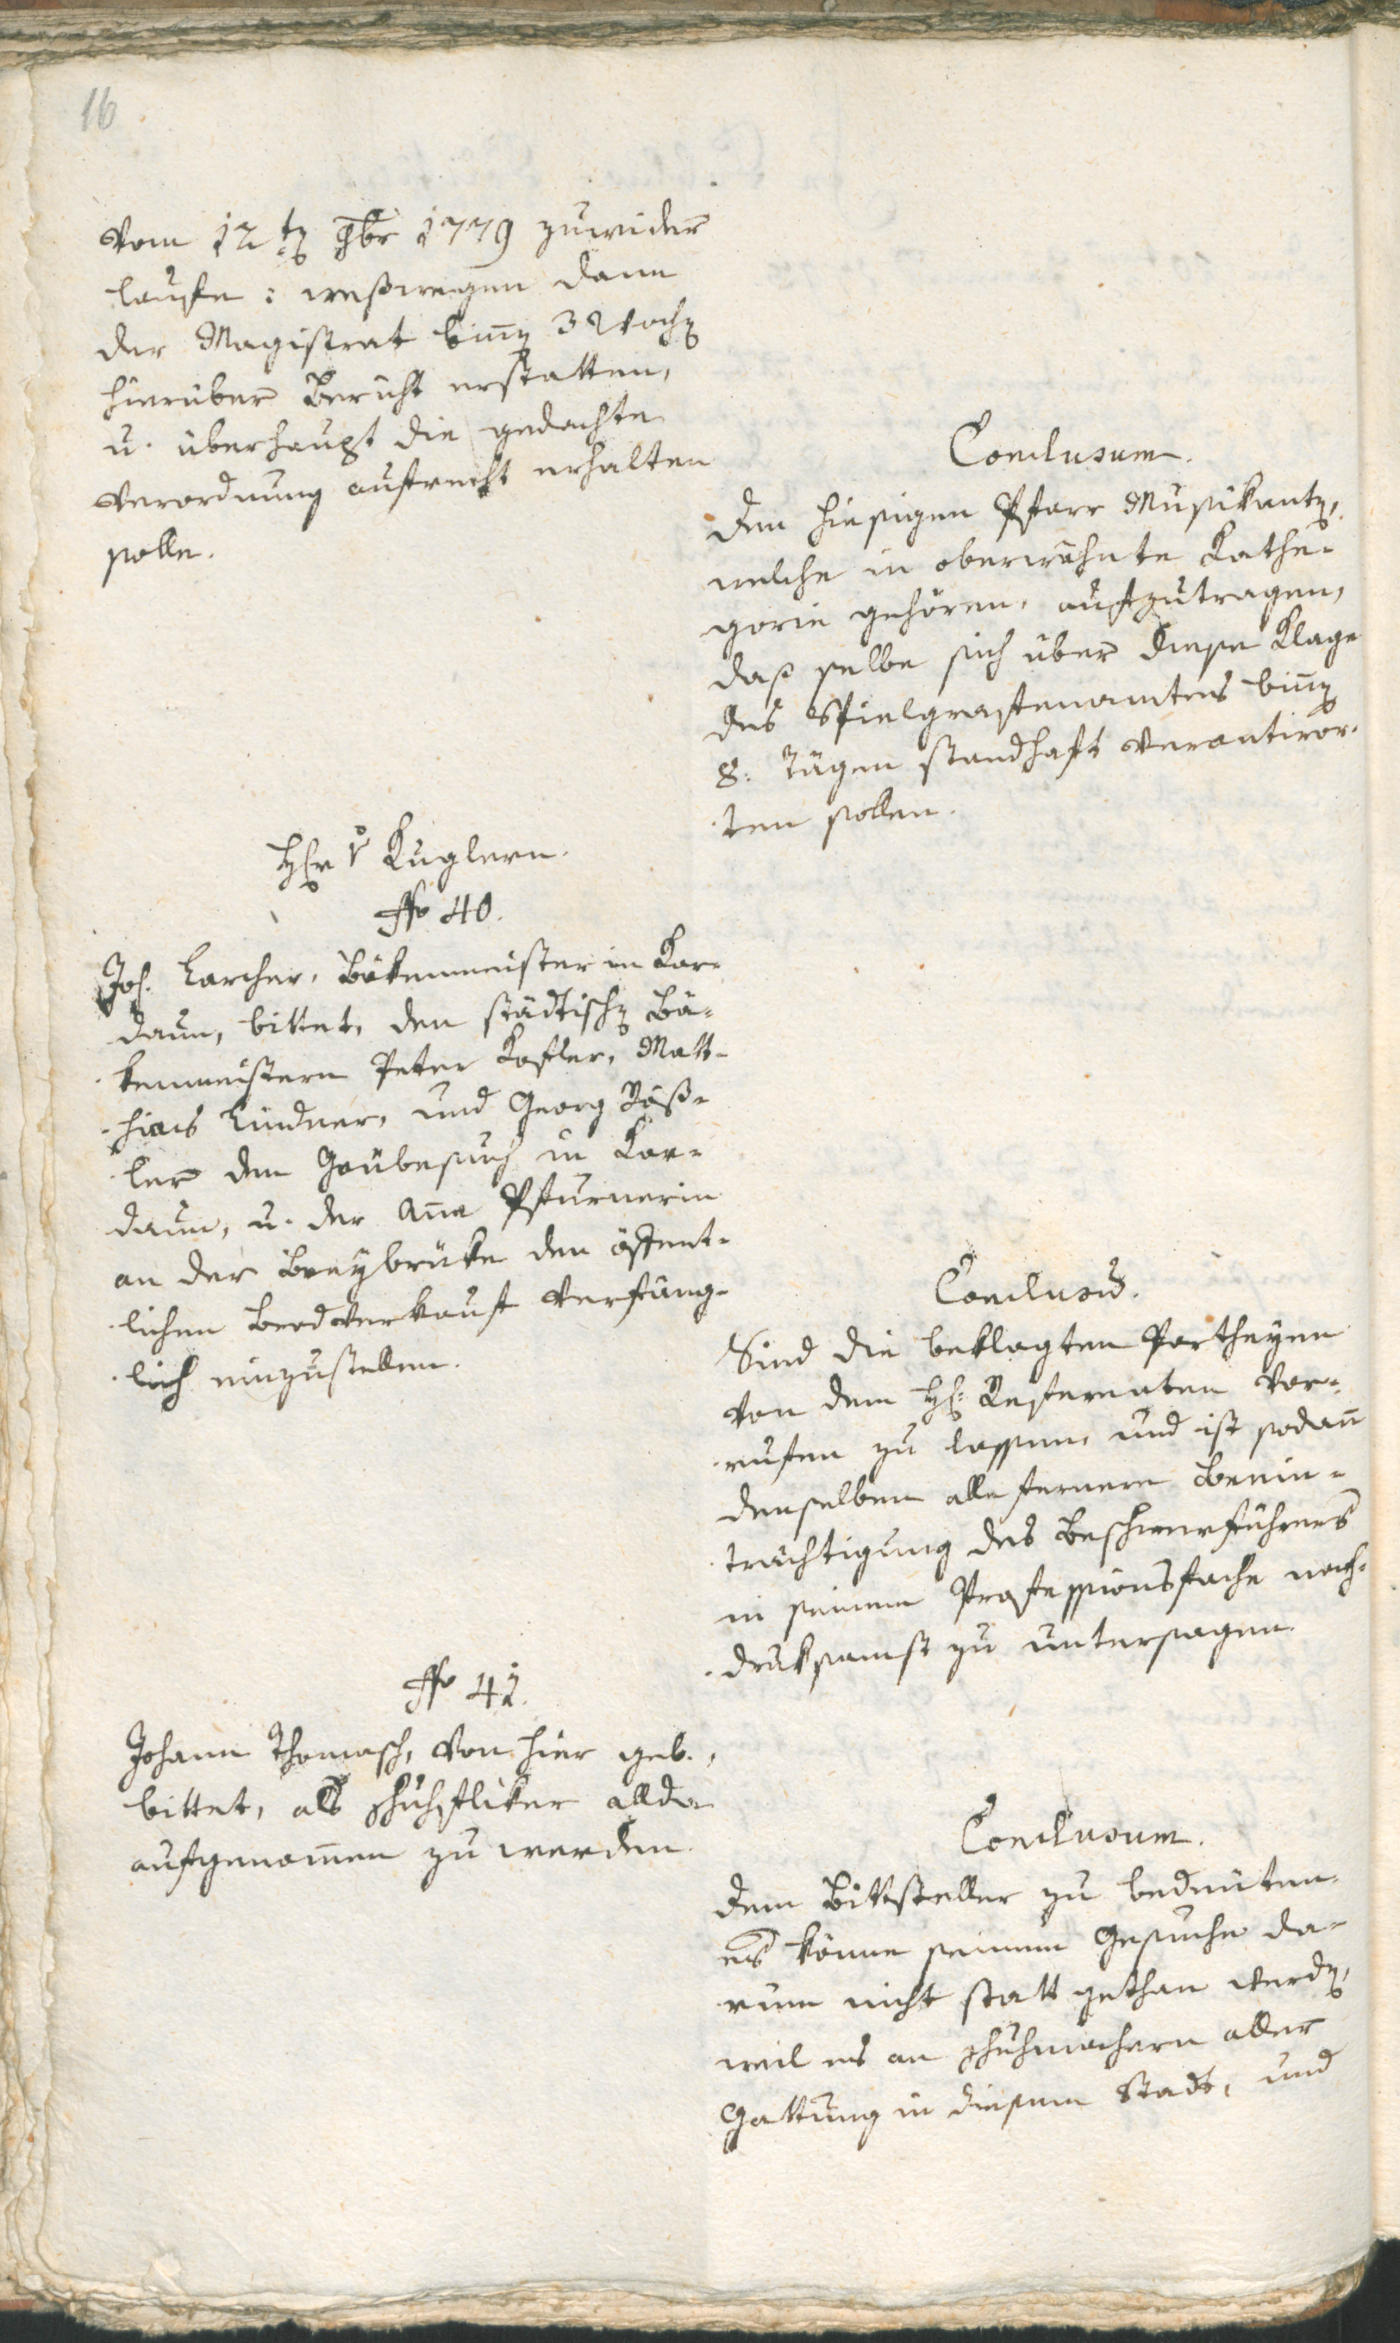 16
vom 12 t. 9br 1779 zuwider
laufe: weßwegen dann
der Magistrat bin̄en 3 Wochen
hierüber Bericht erstatten,
u. überhaupt die gedachte
Verordnung aufrecht erhalten
solle.
Conclusum.
Den hiesigen Pfarr Musikanten,
welche in oberwähnte Kathe-
gorie gehören, aufzutragen,
daß selbe sich über diese Klage
des Spielgrafenamtes bin̄en
8. Tägen standhaft verantwor-
ten sollen.
Hr v Kuglern.
No 40.
Jos. Larcher, Bäkenmeister in Kar-
daun, bittet, den städtischen Bä-
kenmeistern Peter Kofler, Matt-
hias Lindner, und Georg Röß-
ler den Gäubesuch in Kar-
daun, u. der An̄a Pfurnerin
an der Breybrüke den öffent-
lichen Brodverkauf verfäng-
lich einzustellen.
Conclusū.
Sind die beklagten Partheyen
von dem H: Referenten vor-
rufen zu lassen, und ist sodan̄
denselben alle fernere Beein-
trächtigung des Beschwerführers
in seinem Professionsfache nach-
druksamst zu untersagen.
No 41.
Johann Thomasch, von hier geb.,
bittet, als Schuhfliker allda
aufgenom̄en zu werden.
Conclusum.
Dem Bittsteller zu bedeuten,
es könne seinem Gesuche da-
rum nicht statt gethan werden,
weil es an Schuhmachern aller
Gattung in diesem Stadt, und